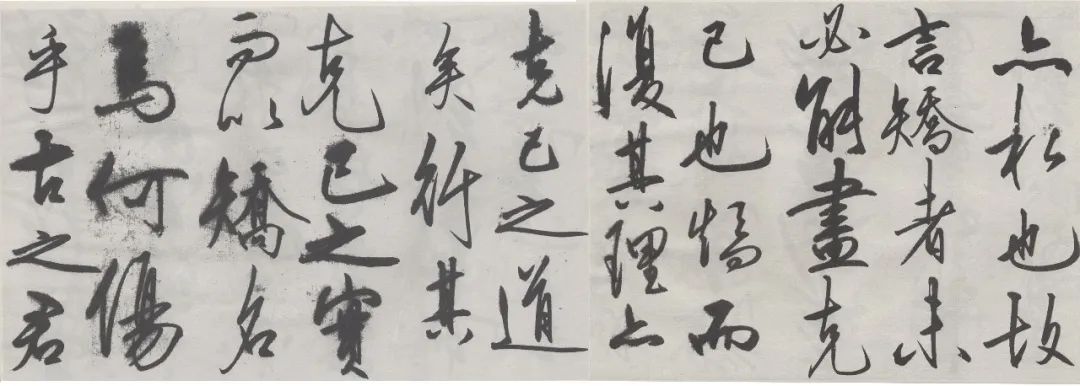 亦私也故
言矯者未
必能盡克
己也矯而
復其理亦
克己之道
矣行其
克己之實
而以矯名
焉何傷
乎古之君